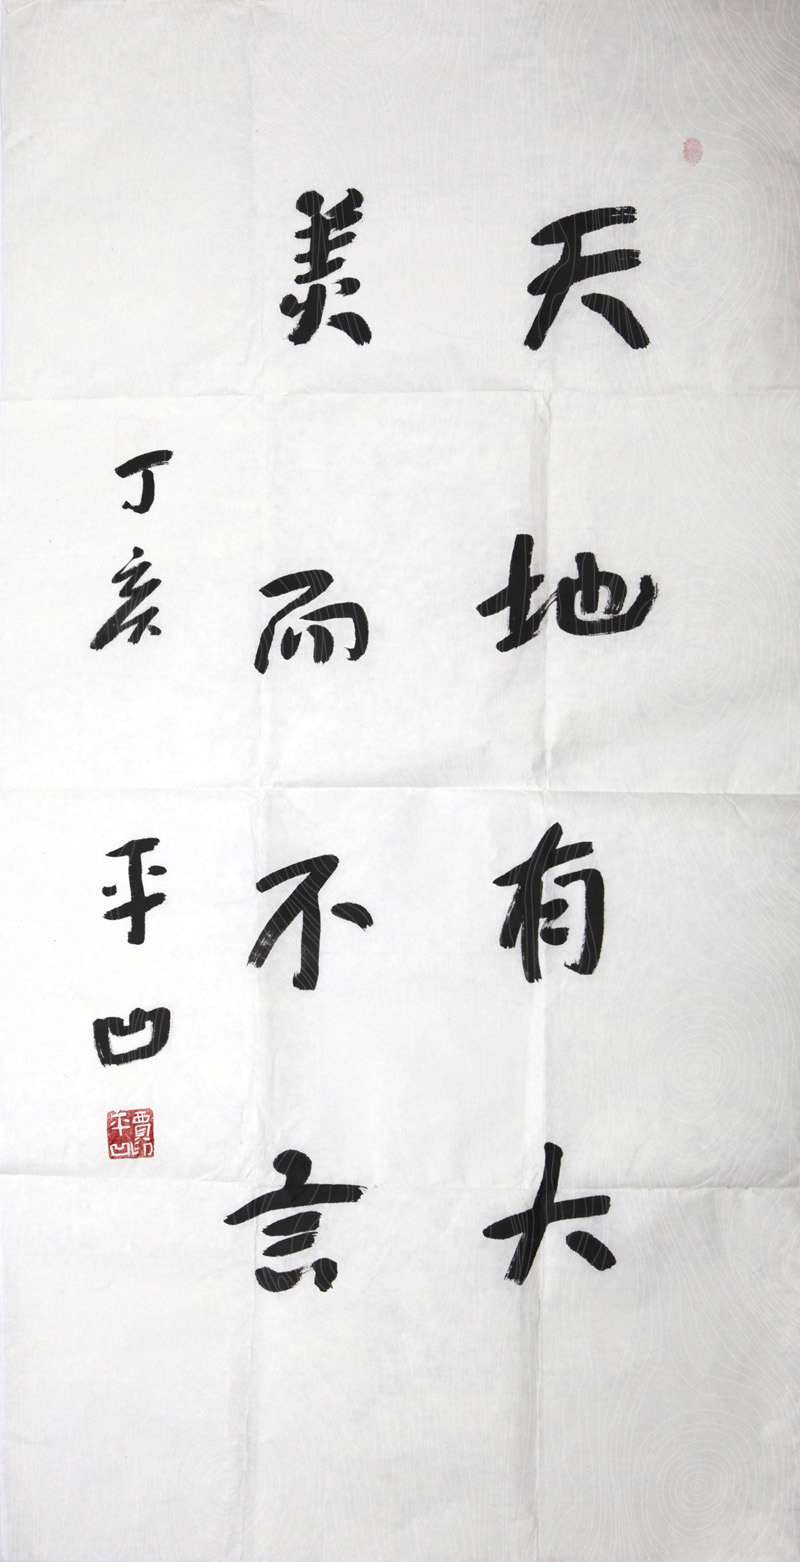 天地有大
美而不言
丁亥
平凹
賈印
平凹